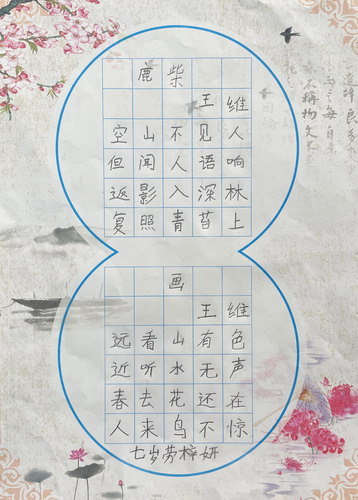 鹿柴
王维
空山不见人
但闻人语响
返影入深林
复照青苔上
画
王维
远看山有色
近听水无声
春去花还在
人来鸟不惊
七岁劳梓妍